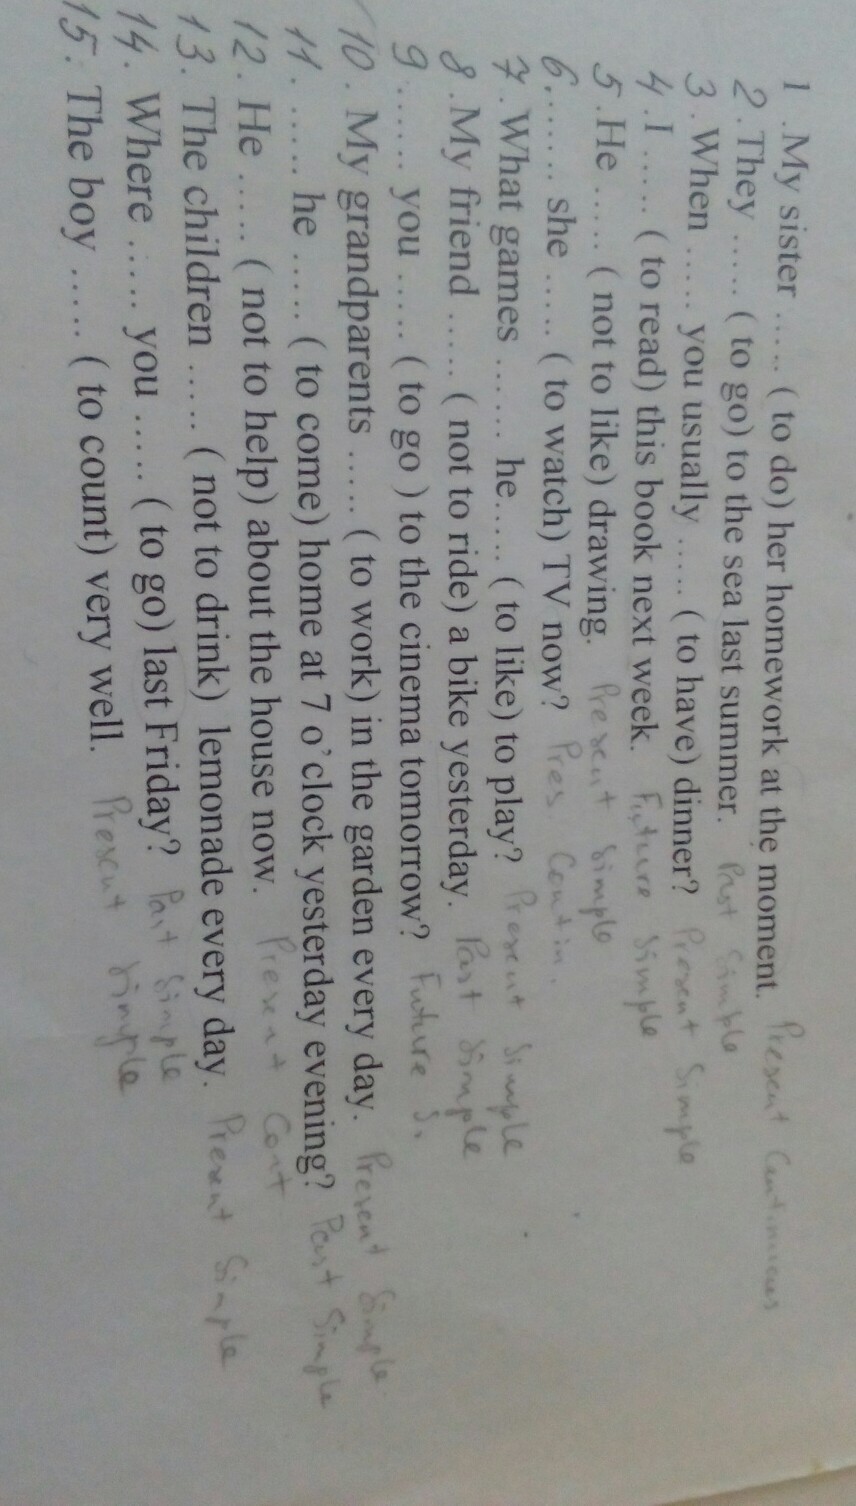 1 .My sister ..... ( to do) her homework at the moment. Present Continuous
2. They ...... ( to go) to the sea last summer. Past Simple
3 . When ...... you usually ..... ( to have) dinner? Present Simple
4 .I ..... ( to read) this book next week. Future Simple
5 .He ..... ( not to like) drawing. Present Simple
6........ she ...... ( to watch) TV now? Pres. Contin.
7 . What games ....... he..... ( to like) to play? Present Simple
8 .My friend ..... ( not to ride) a bike yesterday. Past Simple
9 ...... you ...... ( to go ) to the cinema tomorrow? Future S.
10 . My grandparents ..... ( to work) in the garden every day. Present Simple
11 . ...... he ..... ( to come) home at 7 o'clock yesterday evening? Past Simple
12 . He ..... ( not to help) about the house now. Present Cont
13. The children ..... ( not to drink) lemonade every day. Present Simple
14. Where ..... you ...... ( to go) last Friday? Past Simple
15. The boy ...... ( to count) very well. Present Simple